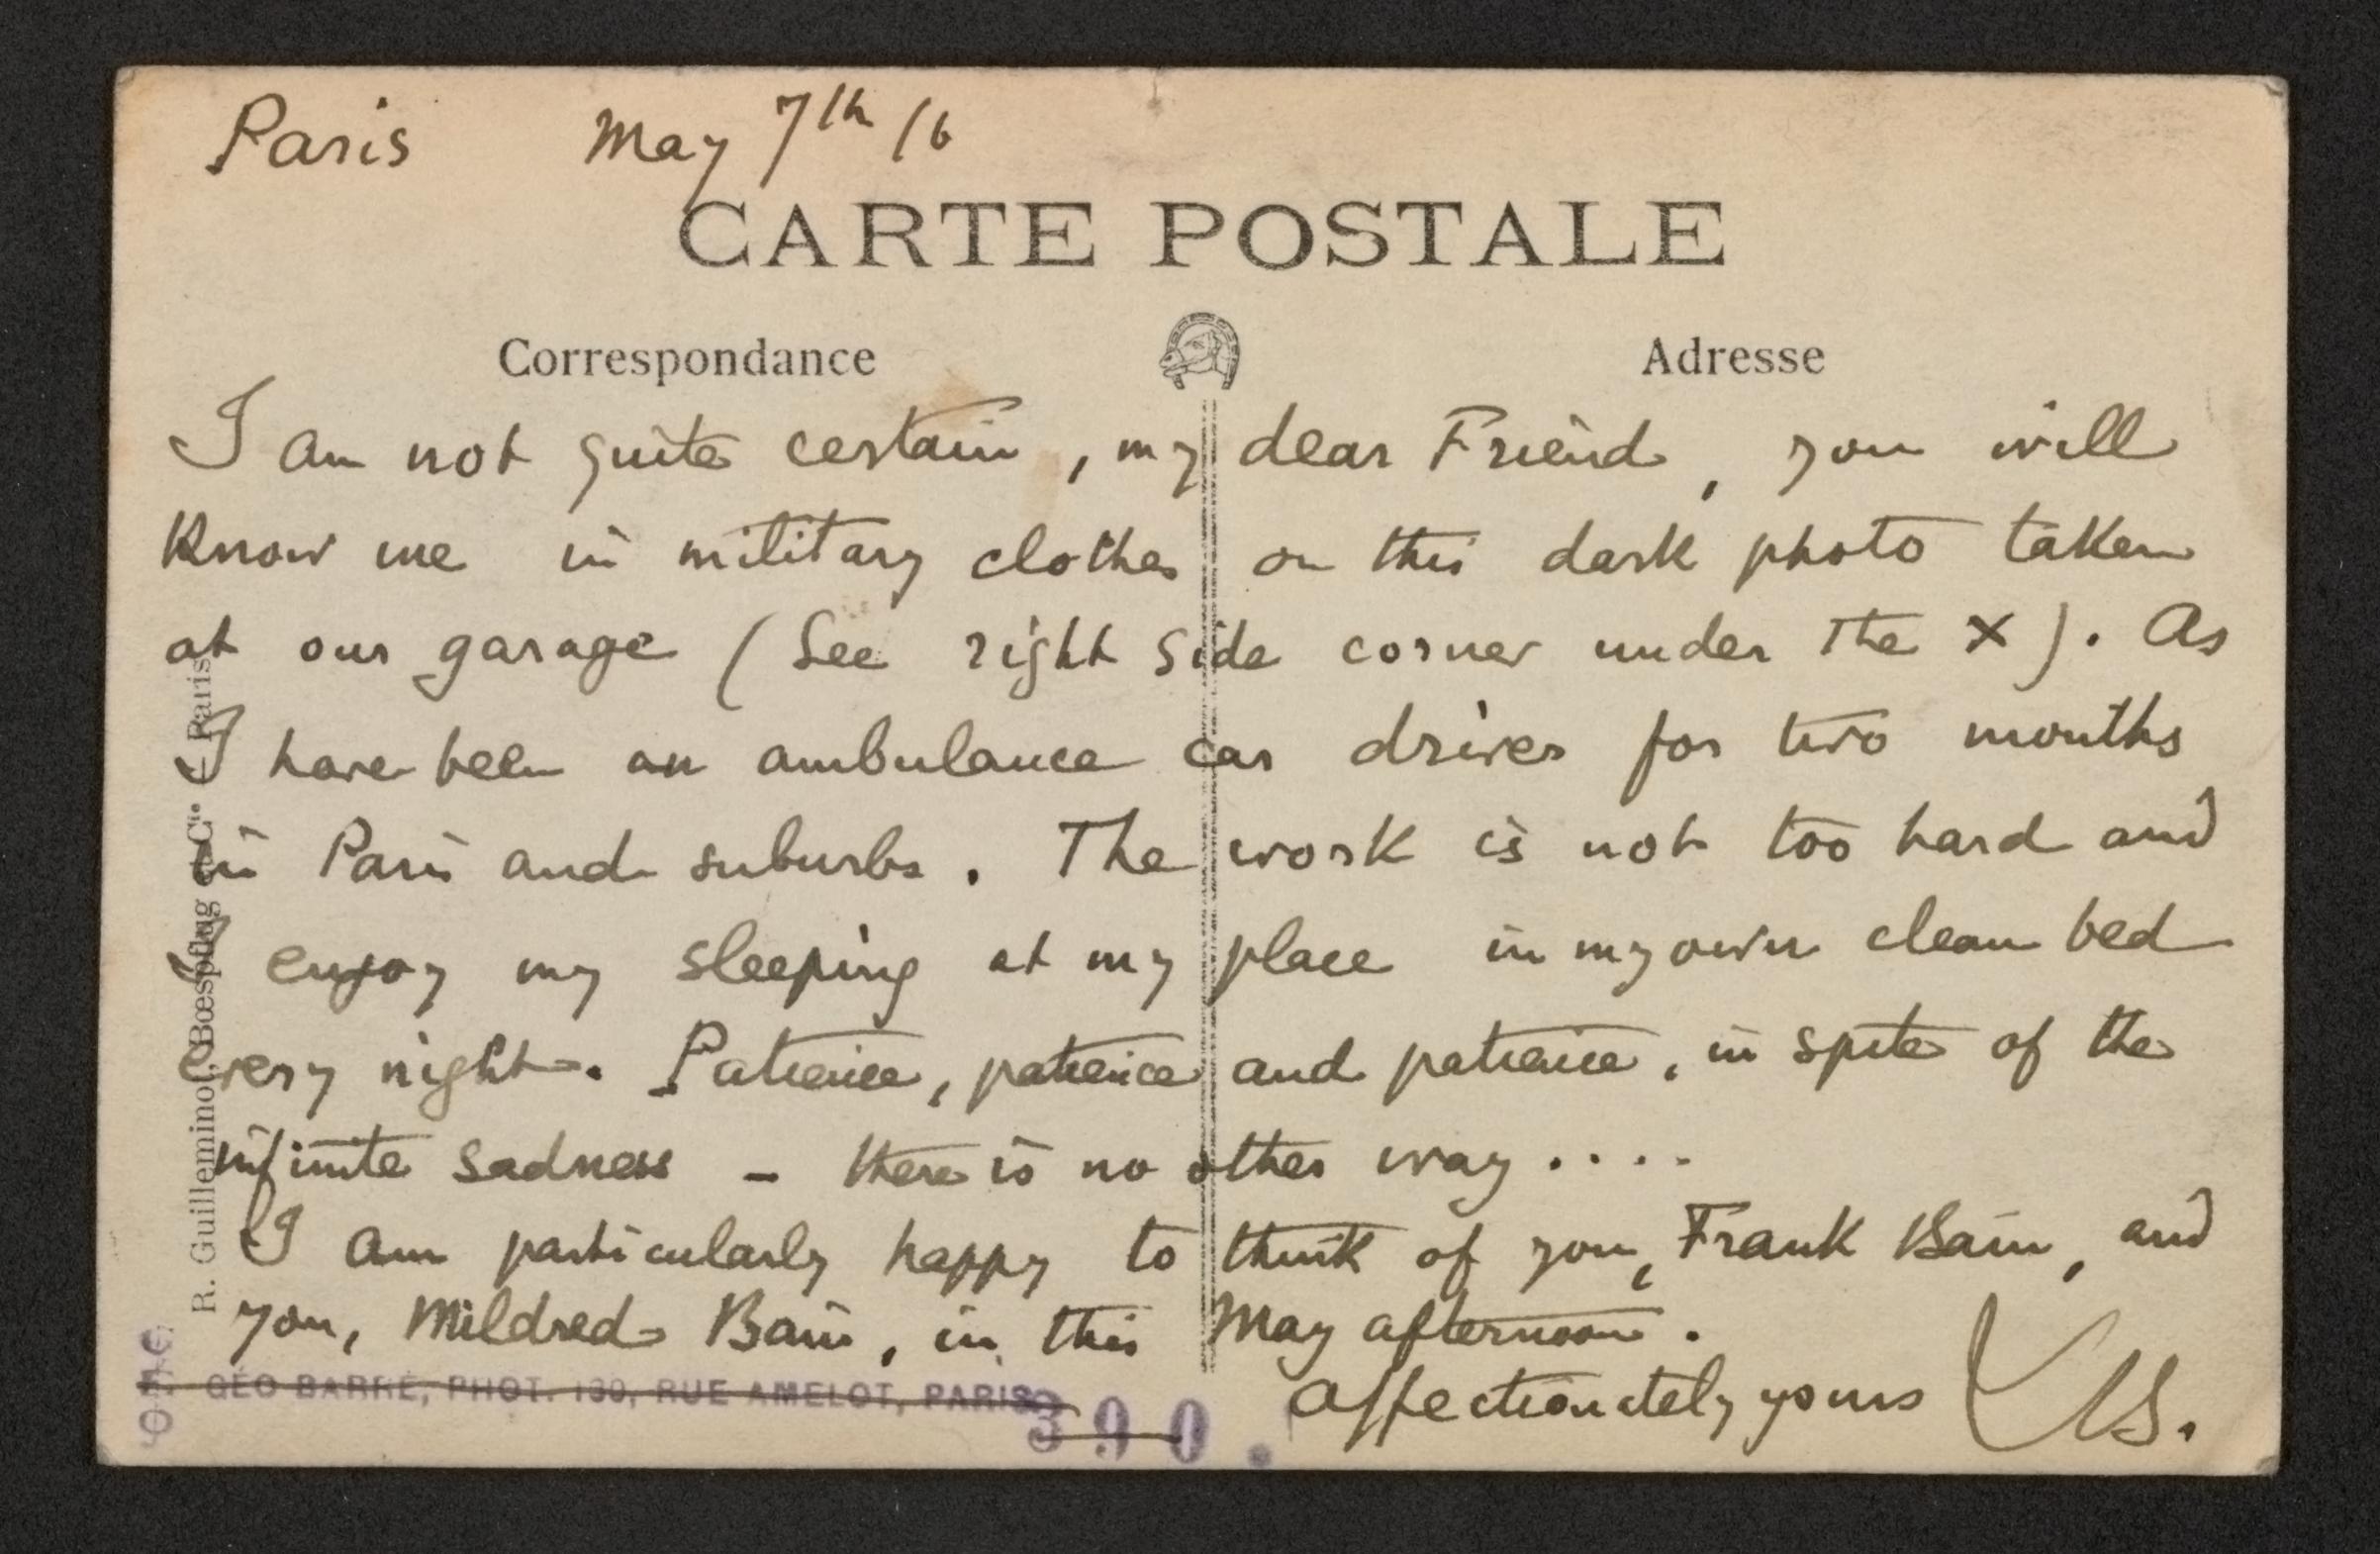 Paris May 7th /16
CARTE POSTALE
Correspondance
Adresse
I am not quite certain, my dear Friend, you will
know me in military clothes on this dark photo taken
at our garage (See right side corner under the X). As
I have been an ambulance car driver for two months
in Paris and suburbs. The work is not too hard and
I enjoy my sleeping at my place in my own clean bed
every night. Patience, patience and patience, in spite of the
infinite sadness - there is no other way....
I am particularly happy to think of you, Frank Bain, and
you, Mildred Bain, in this May afternoon.
Affectionately yours
R. Guilleminot, Bœspflug et Cie - Paris
GÉO BARRÉ, PHOT. 130, RUE AMELOT, PARIS
390.